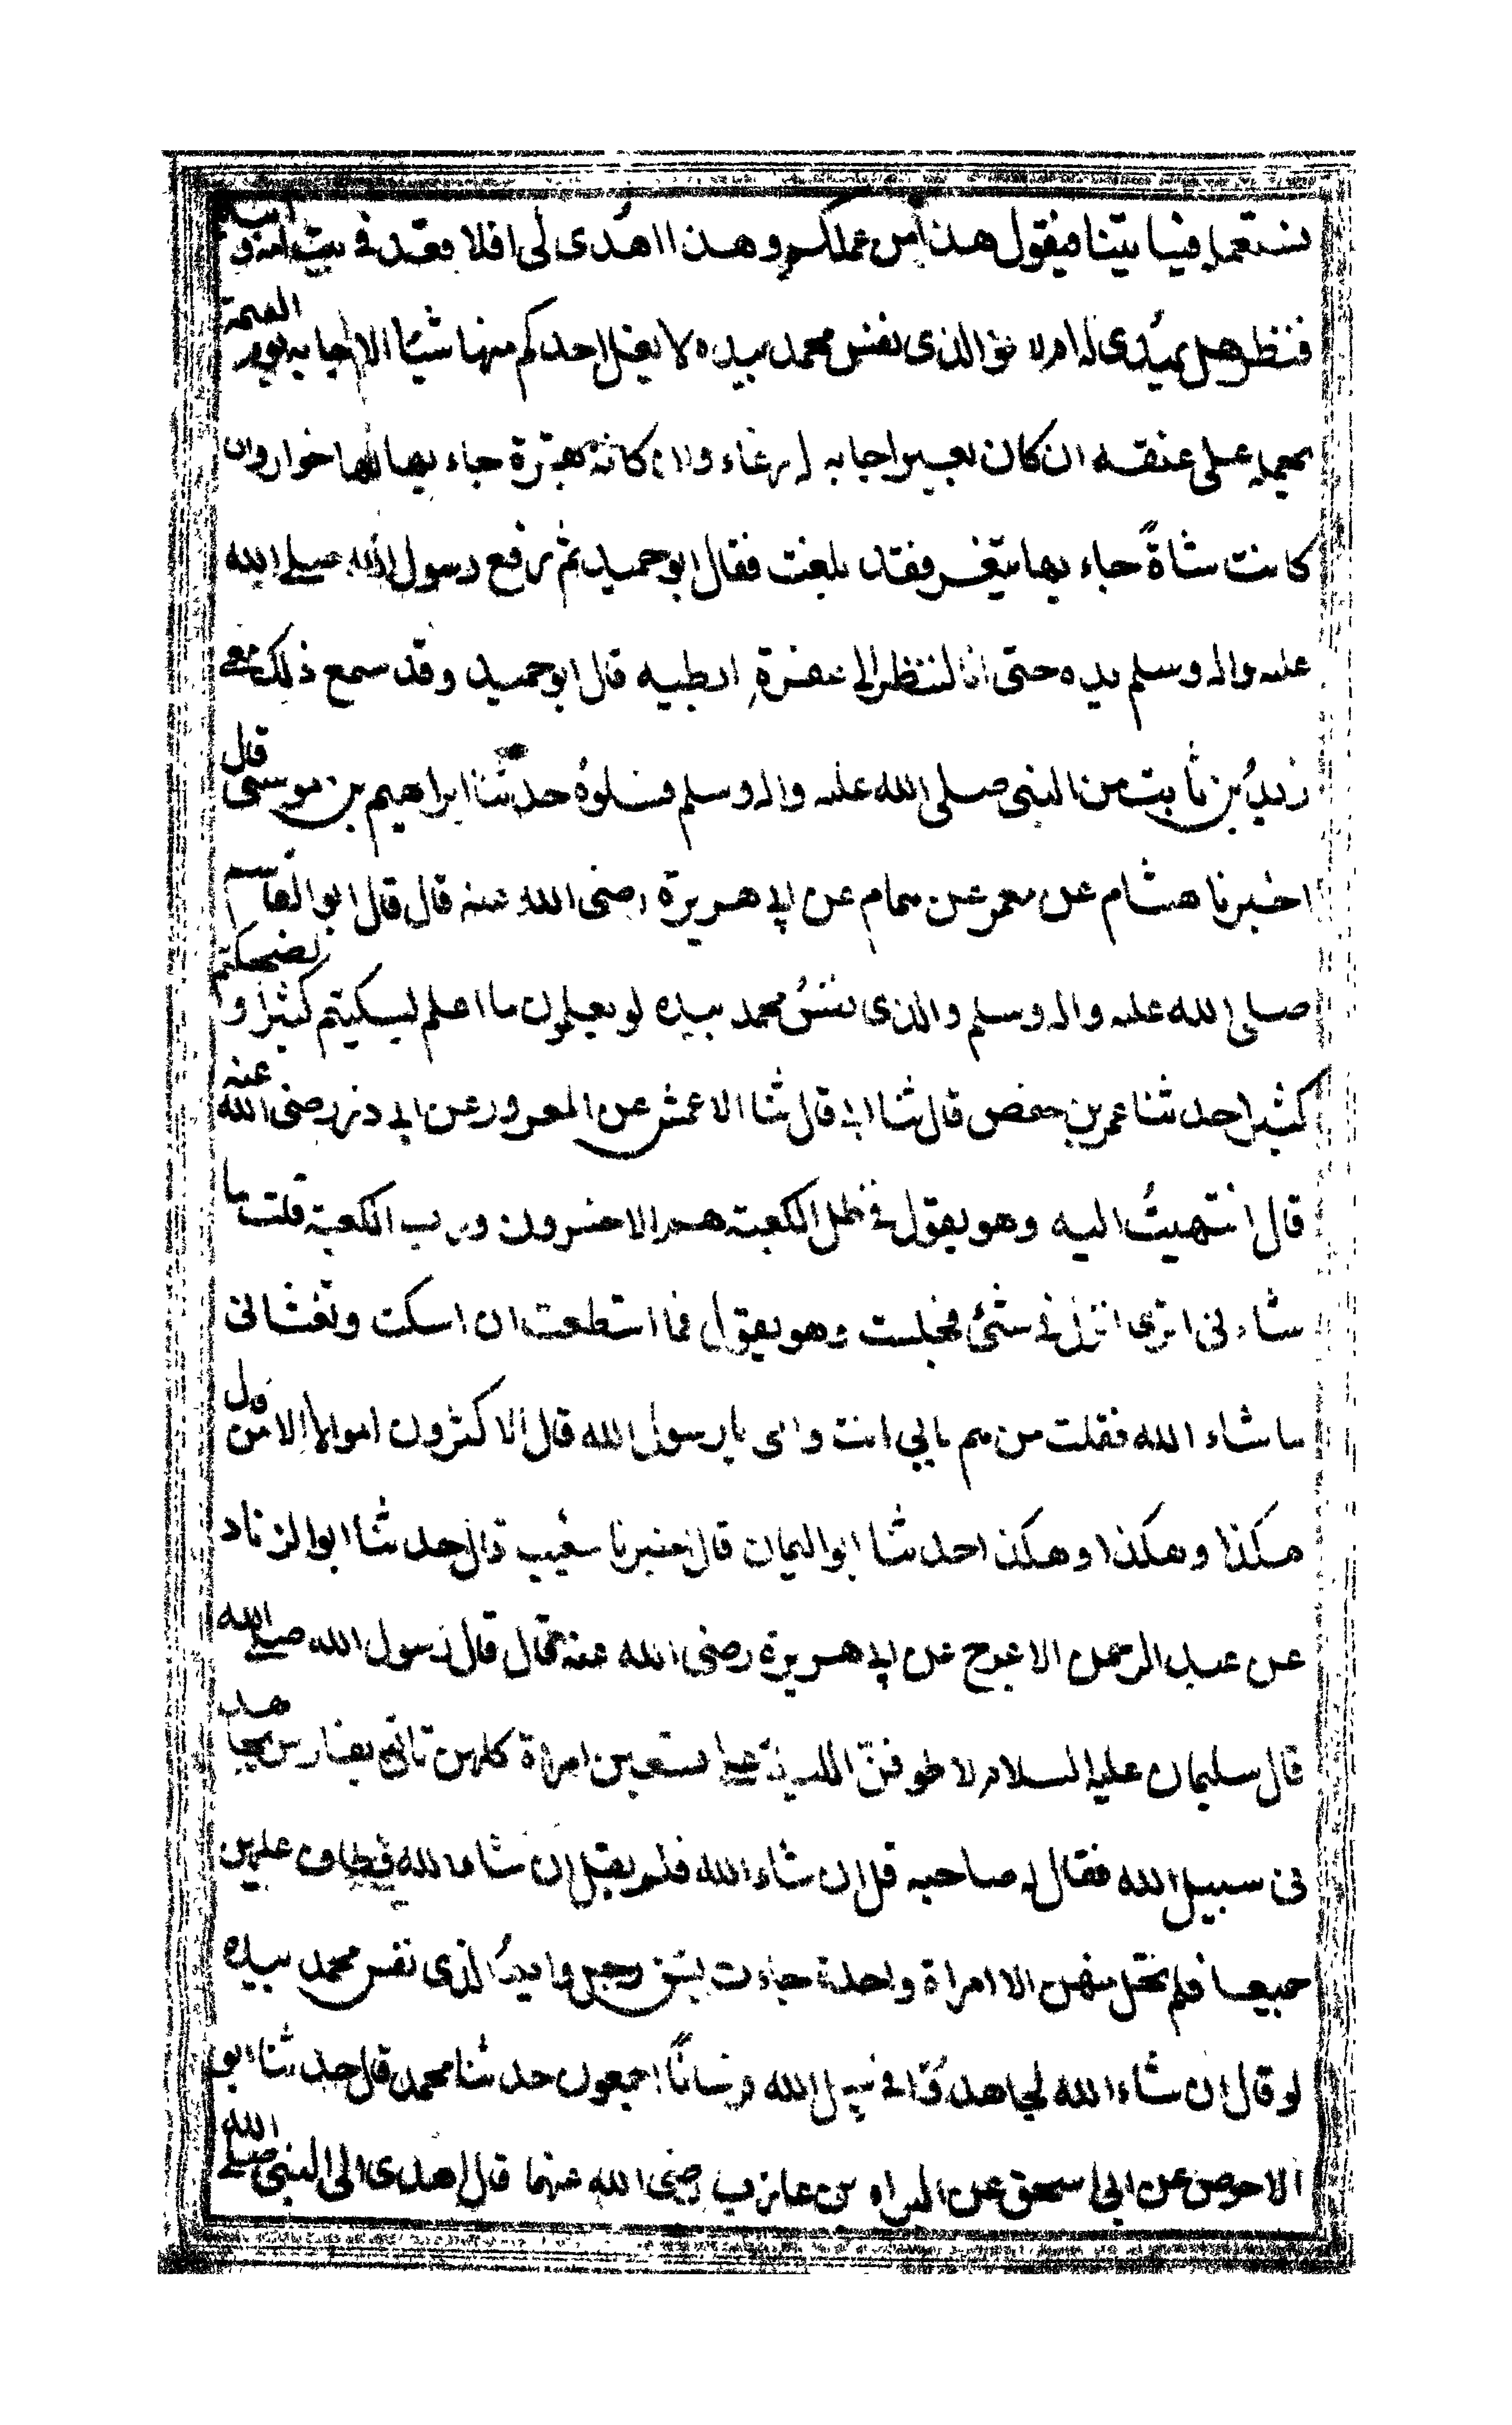 نستعمله فياتينا فيقول هذا من عملكم وهذا اهدى لى افلا قعد فى بيت ابيه وامه
فنظر هل يهدى له ام لا فوالذى نفس محمد بيده لا يغل احدكم منها شيئا الا جاء به يوم القيمة
يحمله على عنقه ان كان بعيرا جاء به له رغاء وان كانت بقرة جاء بها لها خوار وان
كانت شاةً جاء بها تيعر فقد بلغت فقال ابو حميد ثم رفع رسول الله صلى الله
عليه واله وسلم يده حتى انا لننظر الى عفرة ابطيه قال ابو حميد وقد سمع ذلك معى
زيدُ بن ثابت من النبى صلى الله عليه واله وسلم فسلوهُ حدثنا ابراهيم بن موسى قال
اخبرنا هشام عن معمر عن همام عن ابى هريرة رضى الله عنه قال قال ابو القاسم
صلى الله عليه واله وسلم والذى نفسُ محمد بيده لو تعلمون ما اعلم لبكيتم كثيرا و لضحكتم
كثيرا حدثنا عمر بن حفص قال ثنا ابى قال ثنا الاعمش عن المعرور عن ابى ذر رضى الله عنه
قال انتهيتُ اليه وهو يقول فى ظل الكعبة هم الاخسرون ورب الكعبة قلت ما
شاء نى اترى انزل فى شئ فجلست وهو يقول فما استطعت ان اسكت وتغشانى
ما شاء الله فقلت من هم بابى انت وامى يا رسول الله قال الاكثرون اموالا الا من قال
هكذا وهكذا وهكذا حدثنا ابو اليمان قال اخبرنا شعيب قال حدثنا ابو الزناد
عن عبد الرحمن الاعرج عن ابى هريرة رضى الله عنه قال قال رسول الله صلى الله
قال سليمان عليه السلام لاطوفنّ الليلة على تسعين امراة كلهن تاتى بفارس يجاهد
فى سبيل الله فقال له صاحبه قل ان شاء الله فلم يقل ان شاء الله فطاف عليهن
جميعا فلم تحمل منهن الا امراة واحدة جاءت بشق رجل وايمُ الذى نفس محمد بيده
لو قال ان شاء الله لجاهدوا فى سبيل الله فرسانًا اجمعون حدثنا محمد قال حدثنا ابو
الاحوص عن ابى اسحق عن البراء بن عازب رضى الله عنهما قال اهدى الى النبى صلى الله